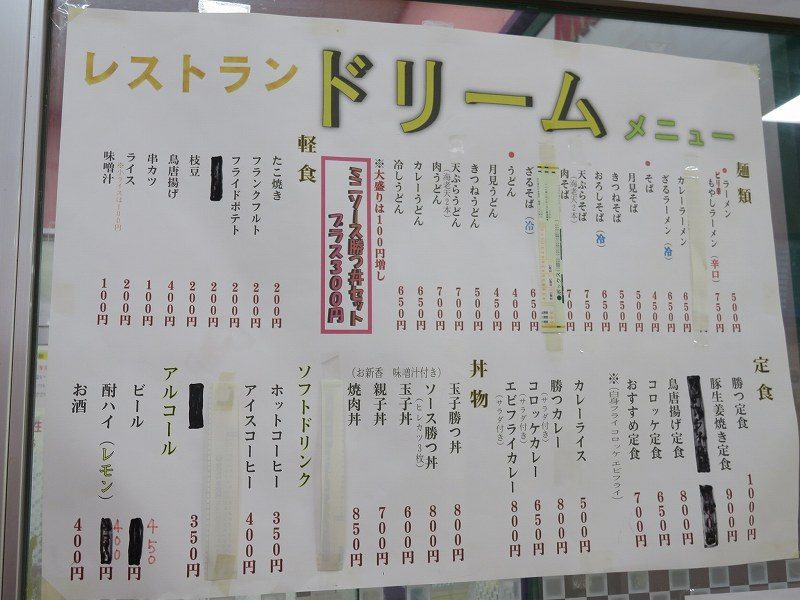 レストラン ドリーム メニュー
麺類
ラーメン 500円
ピリ辛 もやしラーメン(辛口) 750円
カレーラーメン 650円
ざるラーメン(冷) 650円
そば 450円
月見そば 500円
きつねそば 550円
おろしそば(冷) 650円
天ぷらそば(海老天2本) 750円
肉そば 700円
ざるそば(冷) 650円
うどん 400円
月見うどん 450円
きつねうどん 500円
天ぷらうどん(海老天2本) 700円
肉うどん 700円
カレーうどん 650円
冷しうどん 650円
※大盛りは100円増し
ミニソース勝つ丼セット
プラス300円
軽食
たこ焼き 200円
フランクフルト 200円
フライドポテト 200円
200円
枝豆 200円
鳥唐揚げ 400円
串カツ 100円
ライス 200円
※小ライスは100円
味噌汁 100円
定食
勝つ定食 1000円
豚生姜焼き定食 900円
鳥唐揚げ定食 800円
コロッケ定食 650円
おすすめ定食 700円
※(白身フライ コロッケ エビフライ)
カレーライス 500円
勝つカレー 800円
(サラダ付き)
コロッケカレー 650円
(サラダ付き)
エビフライカレー 800円
(サラダ付き)
丼物
(お新香 味噌汁付き)
玉子勝つ丼 800円
ソース勝つ丼 800円
(ヒレカツ3枚)
玉子丼 600円
親子丼 700円
焼肉丼 850円
ソフトドリンク
ホットコーヒー 350円
アイスコーヒー 400円
350円
アルコール
ビール 450円
酎ハイ(レモン) 400円
お酒 400円